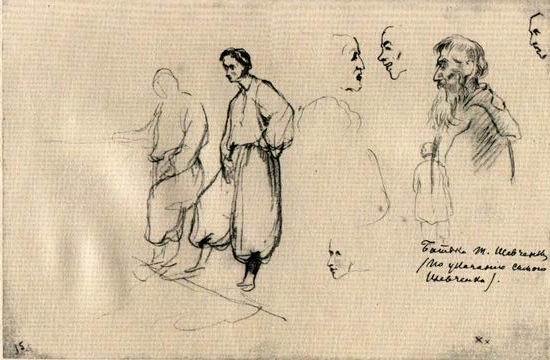 Батько Т. Шевченка
(по указанию самого
Шевченка).
15